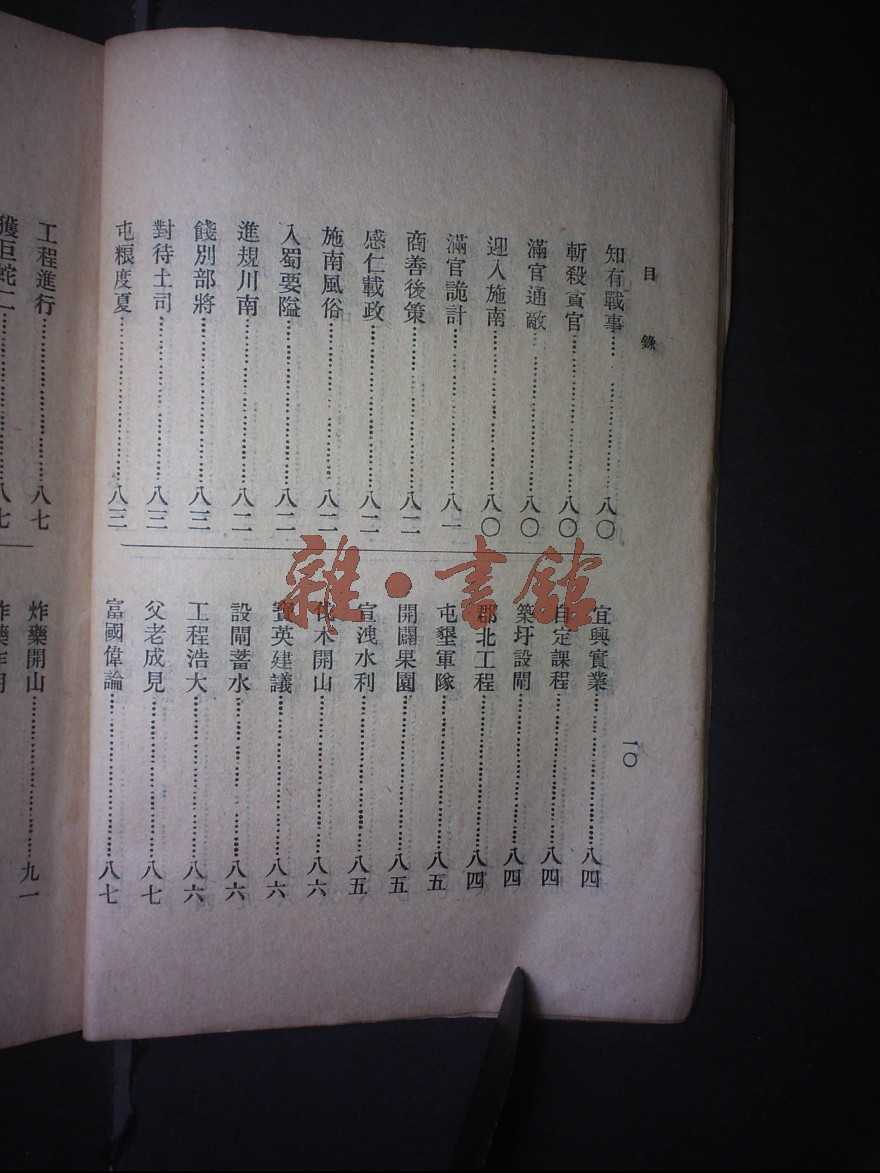 目錄
知有戰事……八〇
斬殺貪官……八〇
滿官通敵……八〇
迎入施南……八〇
滿官詭計……八一
商善後策……八二
感仁載政……八二
施南風俗……八二
入蜀要隘……八二
進規川南……八二
餞別部將……八三
對待土司……八三
屯粮度夏……八三
宜興實業……八四
自定課程……八四
築圩設閘……八四
郡北工程……八四
屯墾軍隊……八五
開闢果園……八五
宣洩水利……八五
伐木開山……八六
寶英建議……八六
設閘蓄水……八六
工程浩大……八六
父老成見……八七
富國偉論……八七
一〇
工程進行……八七
獲巨蛇二……八七
炸藥開山……九一
雜·書館